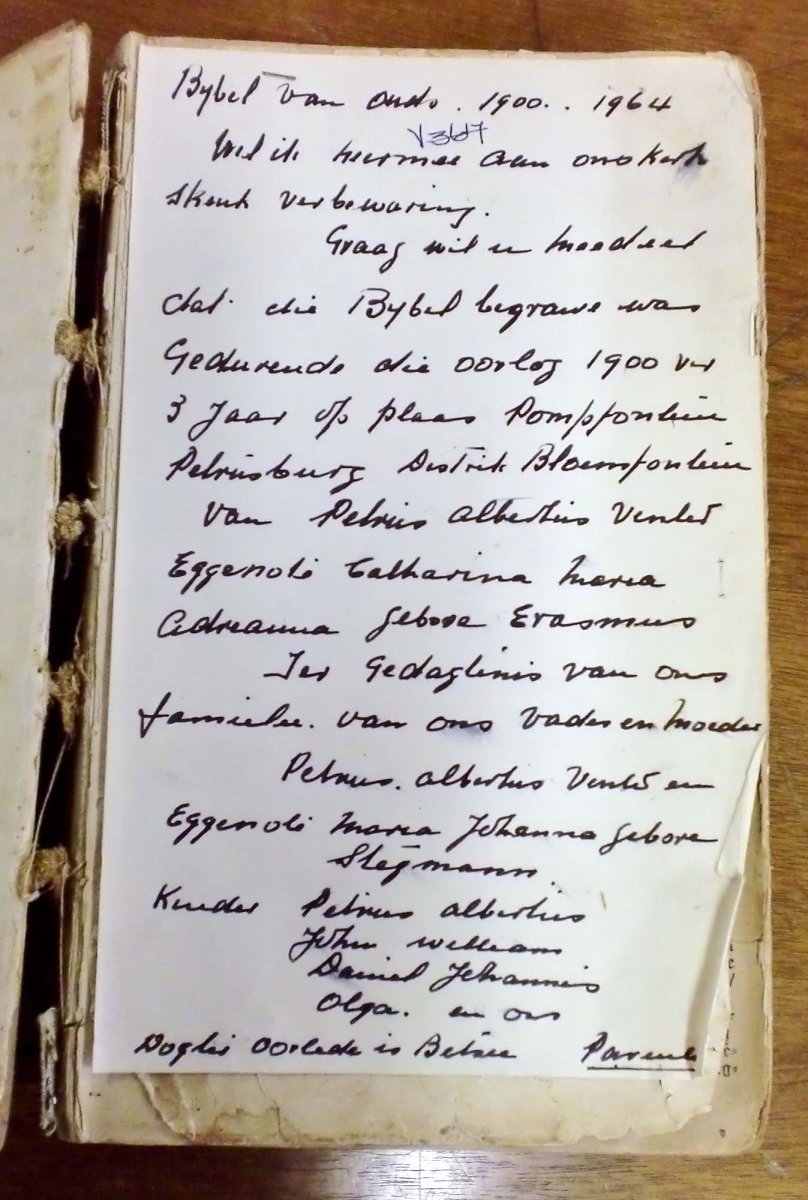 Bybel van ouds. 1900.. 1964
V367
Wil ik hiermee aan ons Kerk
Skenk verbewaring.
Graag wil u meedeel
dat die Bybel begrawe was
Gedurende die oorlog 1900 vir
3 Jaar op plaas Pompfontein
Petrusburg Distrik Bloemfontein
van Petrus Albertus Venter
Eggenote Catharina Maria
Adreanna Gebore Erasmus
Ter Gedagtinis van ons
familie. van ons Vader en Moeder
Petrus. Albertus Venter en
Eggenote Maria Johanna Gebore
Stegmann.
Kinder Petrus Albertus
John William
Daniel Johannis
Olga. en ons
Dogter Oorlede is Betsie